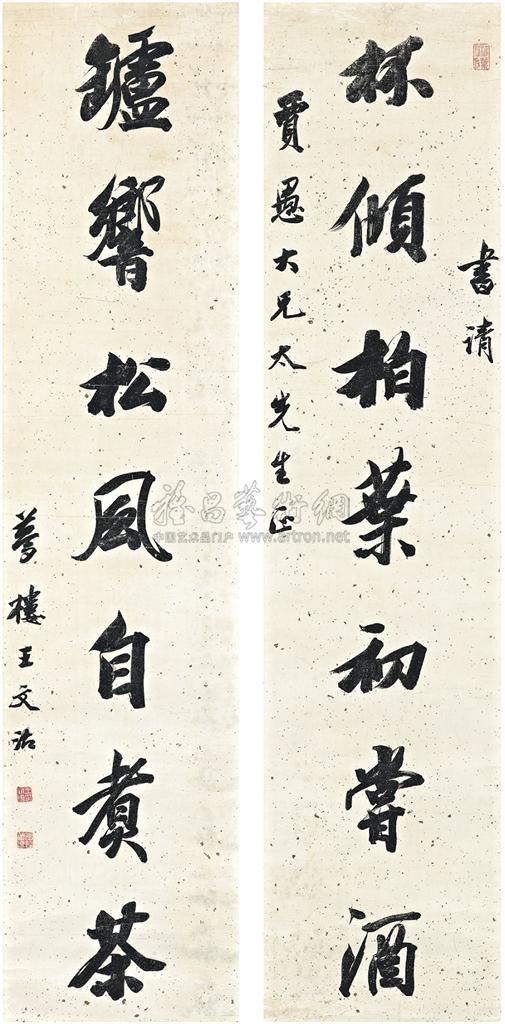 書請
杯傾柏葉初嘗酒
賈愚大兄太先生正
鑪響松風自煑茶
夢樓王文治
雅昌藝術網
中国艺术品门户 www.artron.net